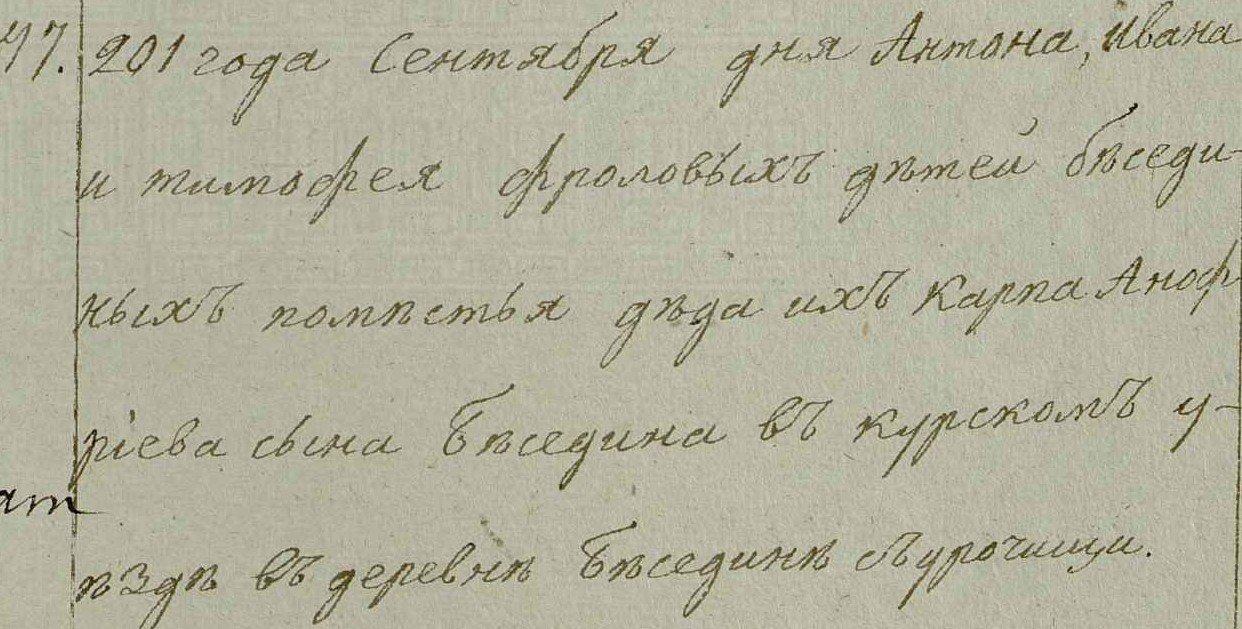 47. 201 года Сентября дня Антона, Ивана
и тимофея фроловыхъ дѣтей бѣседи-
ныхъ помѣстья дѣда ихъ Карпа Аноф-
ріева сына Бѣседина въ курскомъ у-
ѣздѣ въ деревнѣ Бѣсединѣ съурочищи.